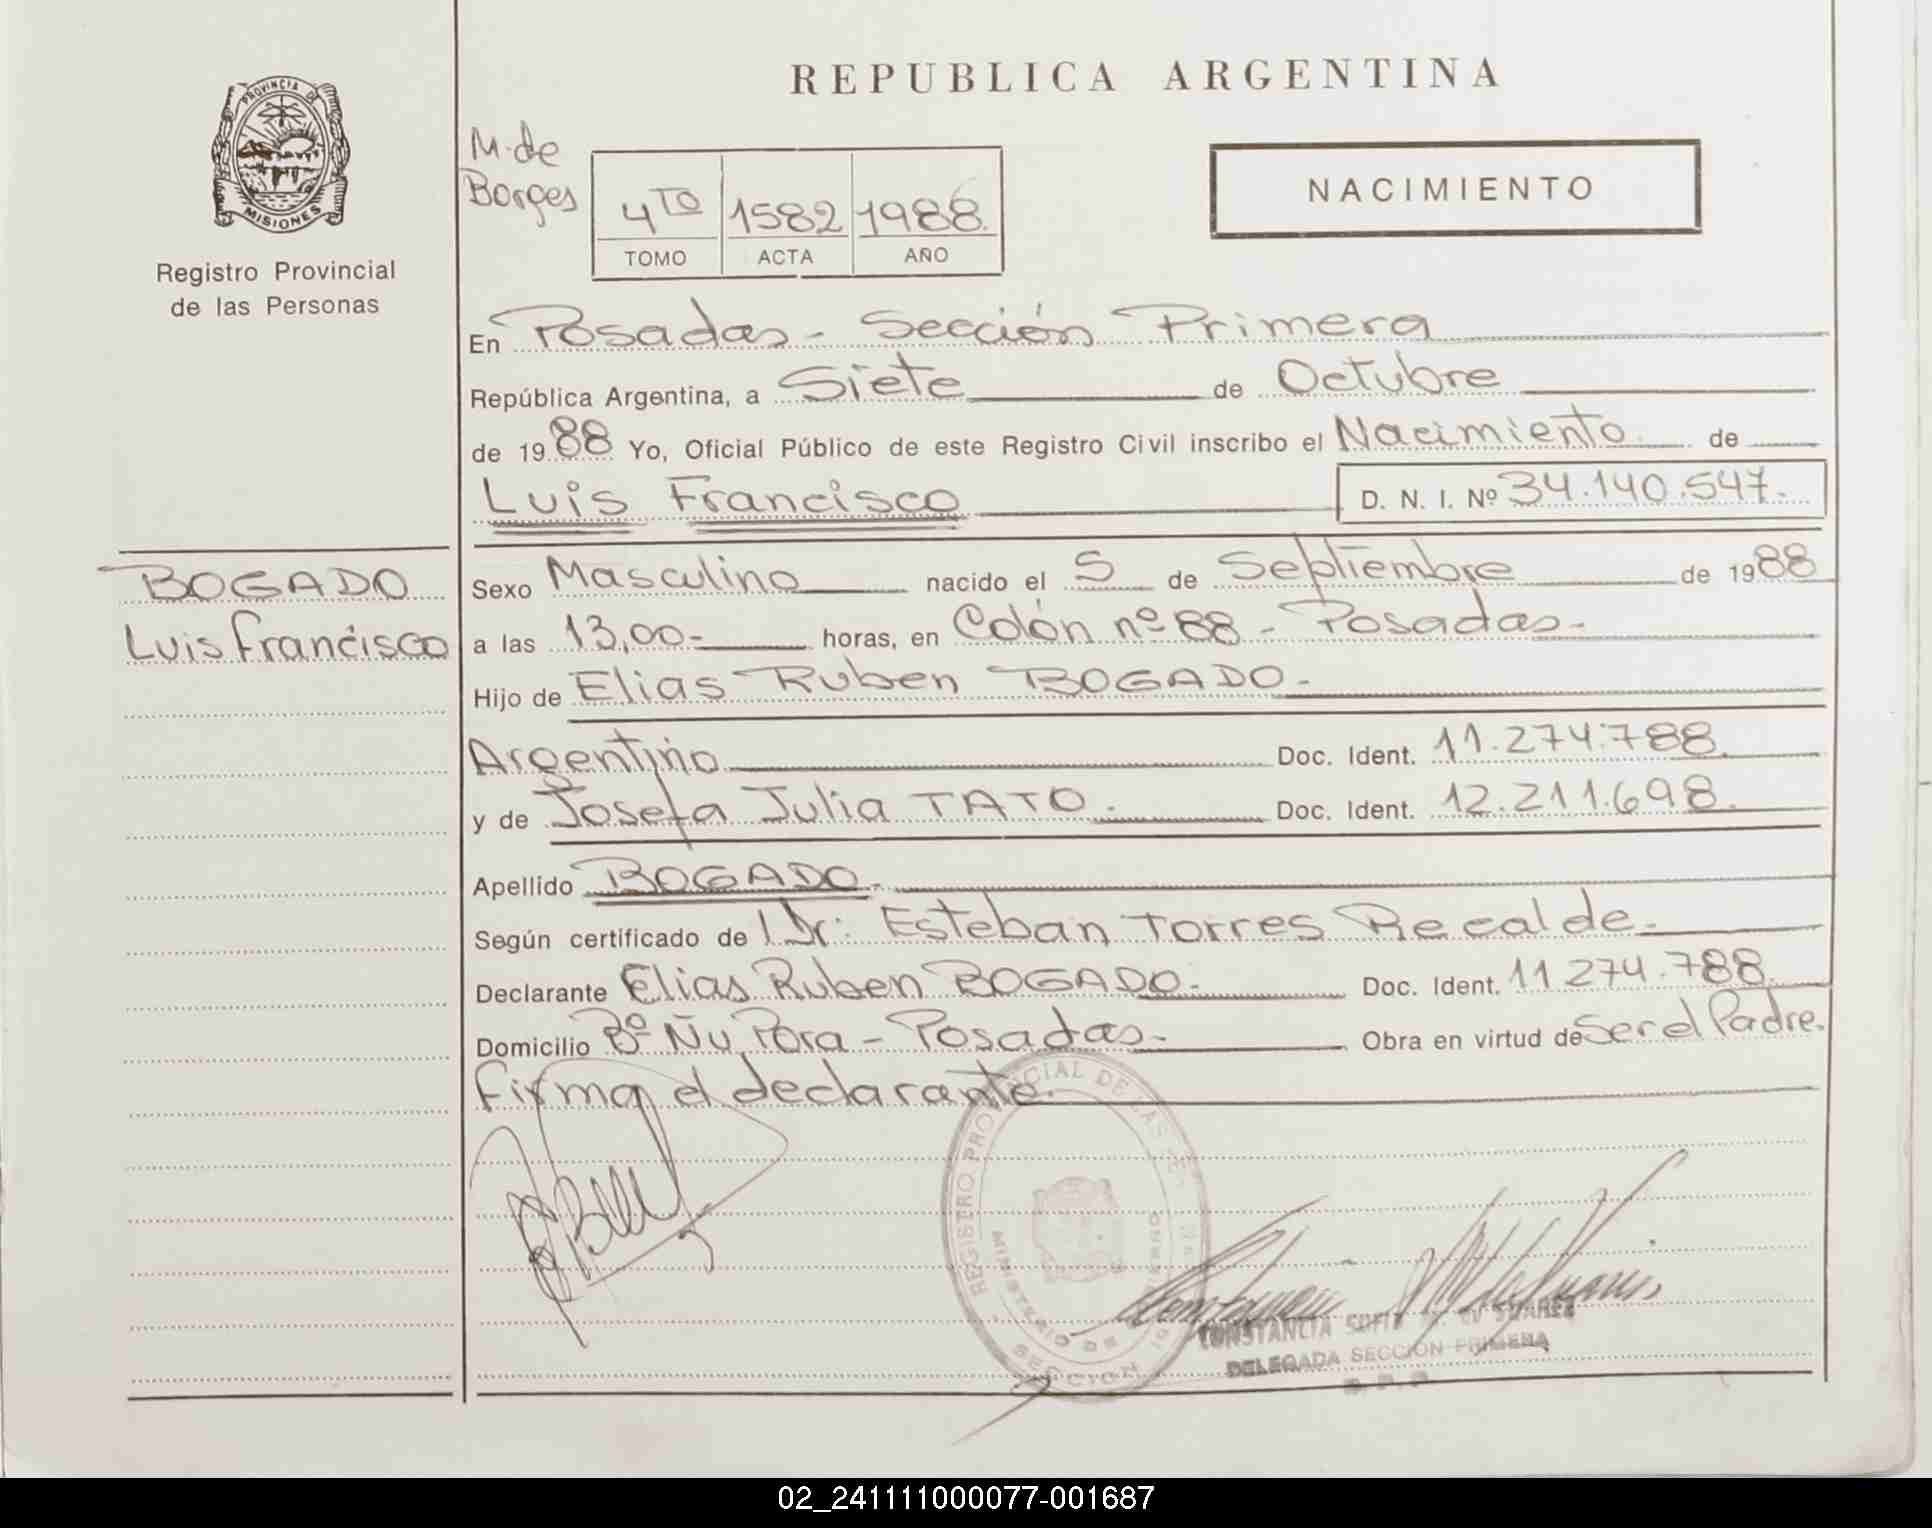 REPUBLICA ARGENTINA
PROVINCIA DE
MISIONES
Registro Provincial
de las Personas
M. de
Borges
4TO 1582 1988.
TOMO ACTA AÑO
NACIMIENTO
En Posadas - Sección Primera
República Argentina, a Siete de Octubre
de 1988 Yo, Oficial Público de este Registro Civil inscribo el Nacimiento de
Luis Francisco D. N. I. Nº 34.140.547.
BOGADO
Luis Francisco
Sexo Masculino nacido el 5 de Septiembre de 1988
a las 13,00- horas, en Colón nº 88 - Posadas.
Hijo de Elias Ruben BOGADO.
Argentino Doc. Ident. 11.274.788.
y de Josefa Julia TATO. Doc. Ident. 12.211.698.
Apellido BOGADO.
Según certificado de Dr: Esteban Torres Recalde.
Declarante Elias Ruben BOGADO. Doc. Ident. 11 274.788.
Domicilio Bº Ñu Pora - Posadas. Obra en virtud de Ser el Padre.
Firma el declarante.
REGISTRO PROVINCIAL DE LAS
MINISTERIO DE
SECCION
CONSTANCIA SOFIA M. de SUAREZ
DELEGADA SECCION PRIMERA
02_241111000077-001687